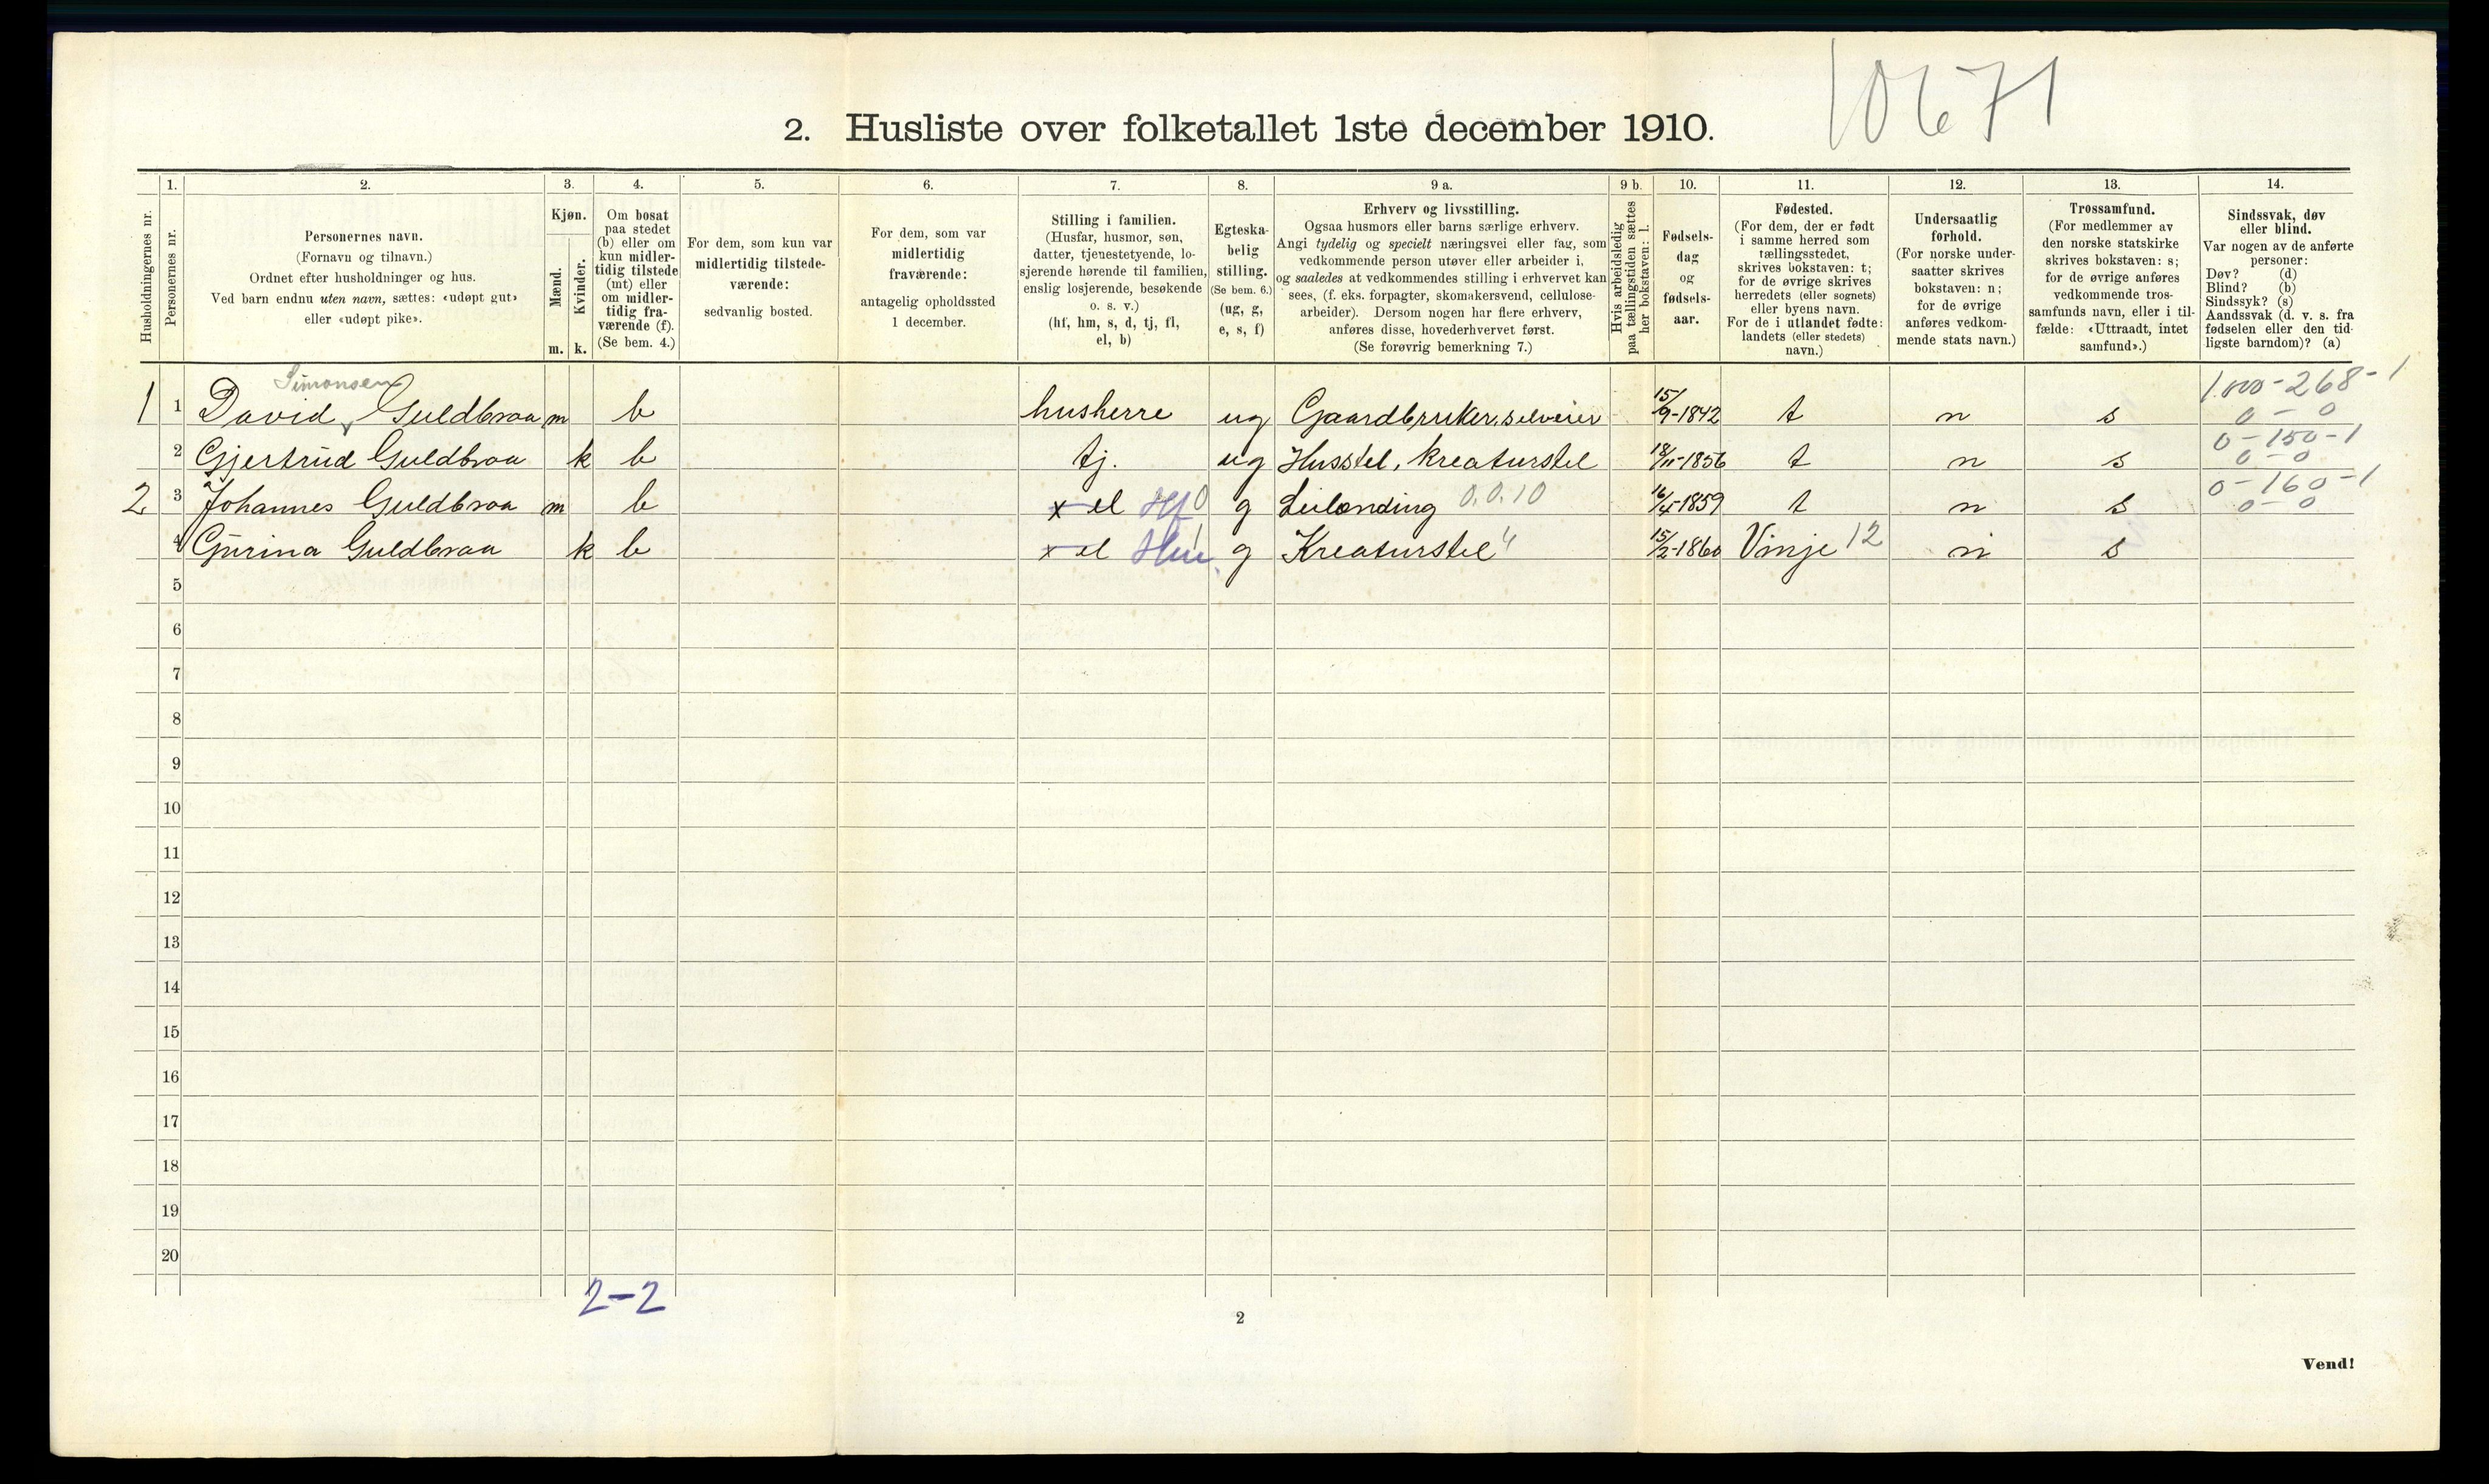 10671
2. Husliste over folketallet 1ste december 1910.
Husholdningernes nr.
1.
Personernes nr.
2.
Personernes navn.
(Fornavn og tilnavn.)
Ordnet efter husholdninger og hus.
Ved barn endnu uten navn, sættes: «udøpt gut»
eller «udøpt pike».
3.
Kjøn.
Mænd.
Kvinder.
m. k.
4.
Om bosat
paa stedet
(b) eller om
kun midler-
tidig tilstede
(mt) eller
om midler-
tidig fra-
værende (f).
(Se bem. 4.)
5.
For dem, som kun var
midlertidig tilstede-
værende:
sedvanlig bosted.
6.
For dem, som var
midlertidig
fraværende:
antagelig opholdssted
1 december.
7.
Stilling i familien.
(Husfar, husmor, søn,
datter, tjenestetyende, lo-
sjerende hørende til familien,
enslig losjerende, besøkende
o. s. v.)
(hf, hm, s, d, tj, fl,
el, b)
8.
Egteska-
belig
stilling.
(Se bem. 6.)
(ug, g,
e, s, f)
9 a.
Erhverv og livsstilling.
Ogsaa husmors eller barns særlige erhverv.
Angi tydelig og specielt næringsvei eller fag, som
vedkommende person utøver eller arbeider i,
og saaledes at vedkommendes stilling i erhvervet kan
sees, (f. eks. forpagter, skomakersvend, cellulose-
arbeider). Dersom nogen har flere erhverv,
anføres disse, hovederhvervet først.
(Se forøvrig bemerkning 7.)
9 b.
Hvis arbeidsledig
paa tællingstiden sættes
her bokstaven: l.
10.
Fødsels-
dag
og
fødsels-
aar.
11.
Fødested.
(For dem, der er født
i samme herred som
tællingsstedet,
skrives bokstaven: t;
for de øvrige skrives
herredets (eller sognets)
eller byens navn.
For de i utlandet fødte:
landets (eller stedets)
navn.)
12.
Undersaatlig
forhold.
(For norske under-
saatter skrives
bokstaven: n;
for de øvrige
anføres vedkom-
mende stats navn.)
13.
Trossamfund.
(For medlemmer av
den norske statskirke
skrives bokstaven: s;
for de øvrige anføres
vedkommende tros-
samfunds navn, eller i til-
fælde: «Uttraadt, intet
samfund».)
14.
Sindssvak, døv
eller blind.
Var nogen av de anførte
personer:
Døv? (d)
Blind? (b)
Sindssyk? (s)
Aandssvak (d. v. s. fra
fødselen eller den tid-
ligste barndom)? (a)
Simonsen
1 1 David Guldbraa m b husherre ug Gaardbruker, selveier 15/9-1842 t n s 1.000-268-1 0-0
2 Gjertrud Guldbraa k b tj. ug Husstel, kreaturstel 18/11-1856 t n s 0-150-1 0-0
2 3 Johannes Guldbraa m b x el Hf 0 g Leilænding 0.0.10 16/4-1859 t n s 0-160-1 0-0
4 Gurina Guldbraa k b x el g Kreaturstel 4 15/2-1860 Vinje 12 n s
5
6
7
8
9
10
11
12
13
14
15
16
17
18
19
20
2-2
2
Vend!